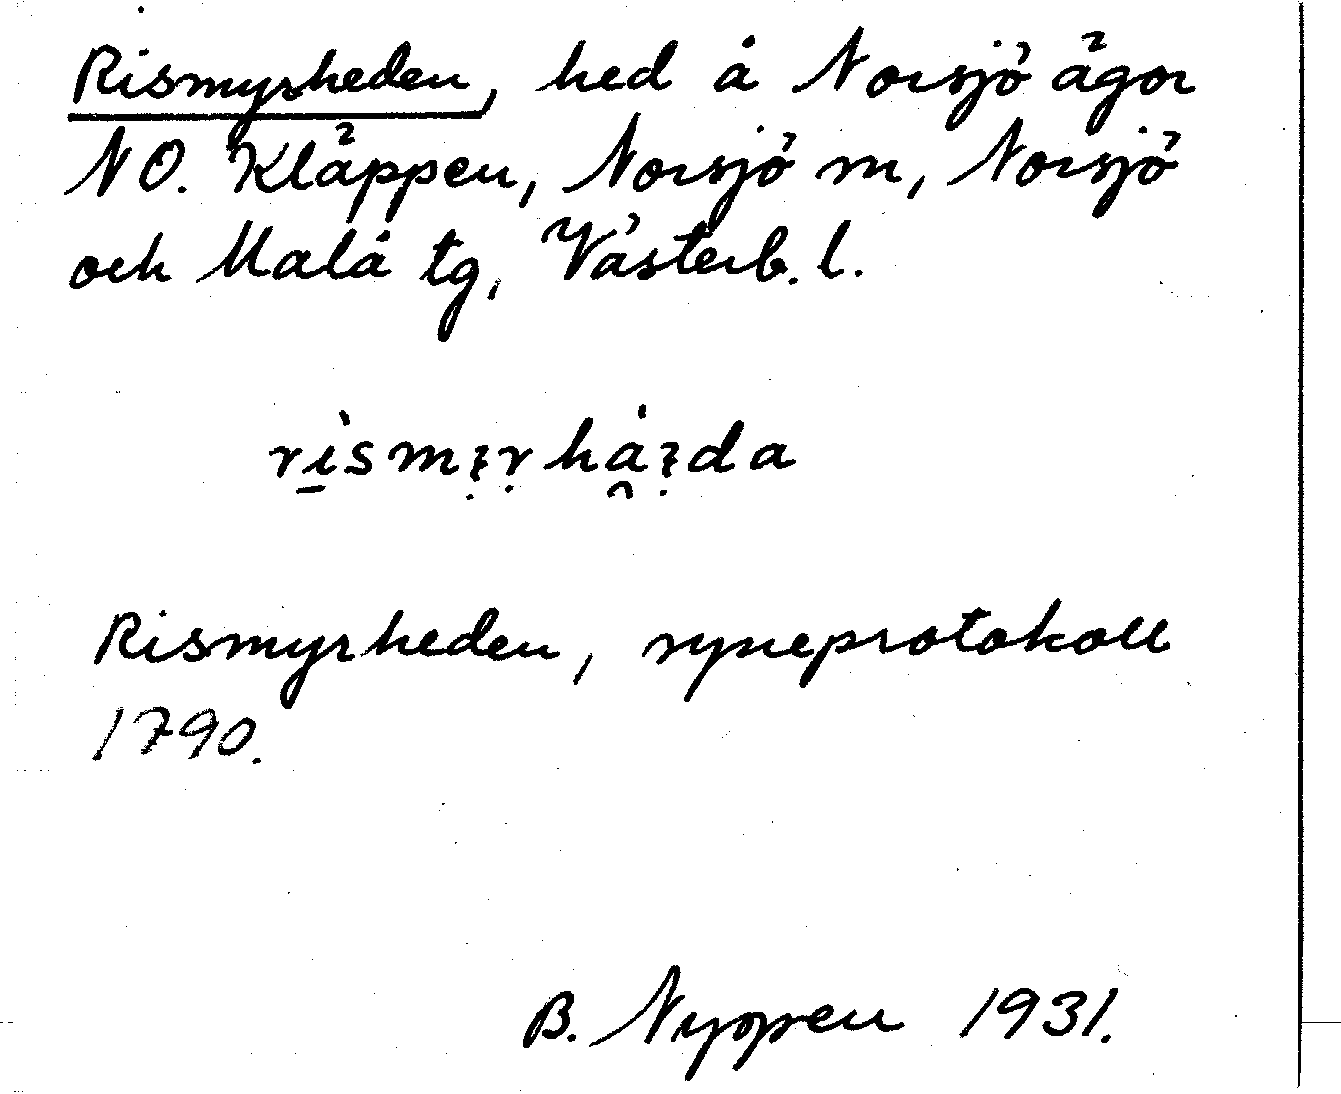 Rismyrheden, hed å Norsjö ägor
NO. Kläppen, Norsjö m, Norsjö
och Malå tg, Västerb. l.
Rismyrheden, syneprotokoll
1790.
B. Nyopen 1931.